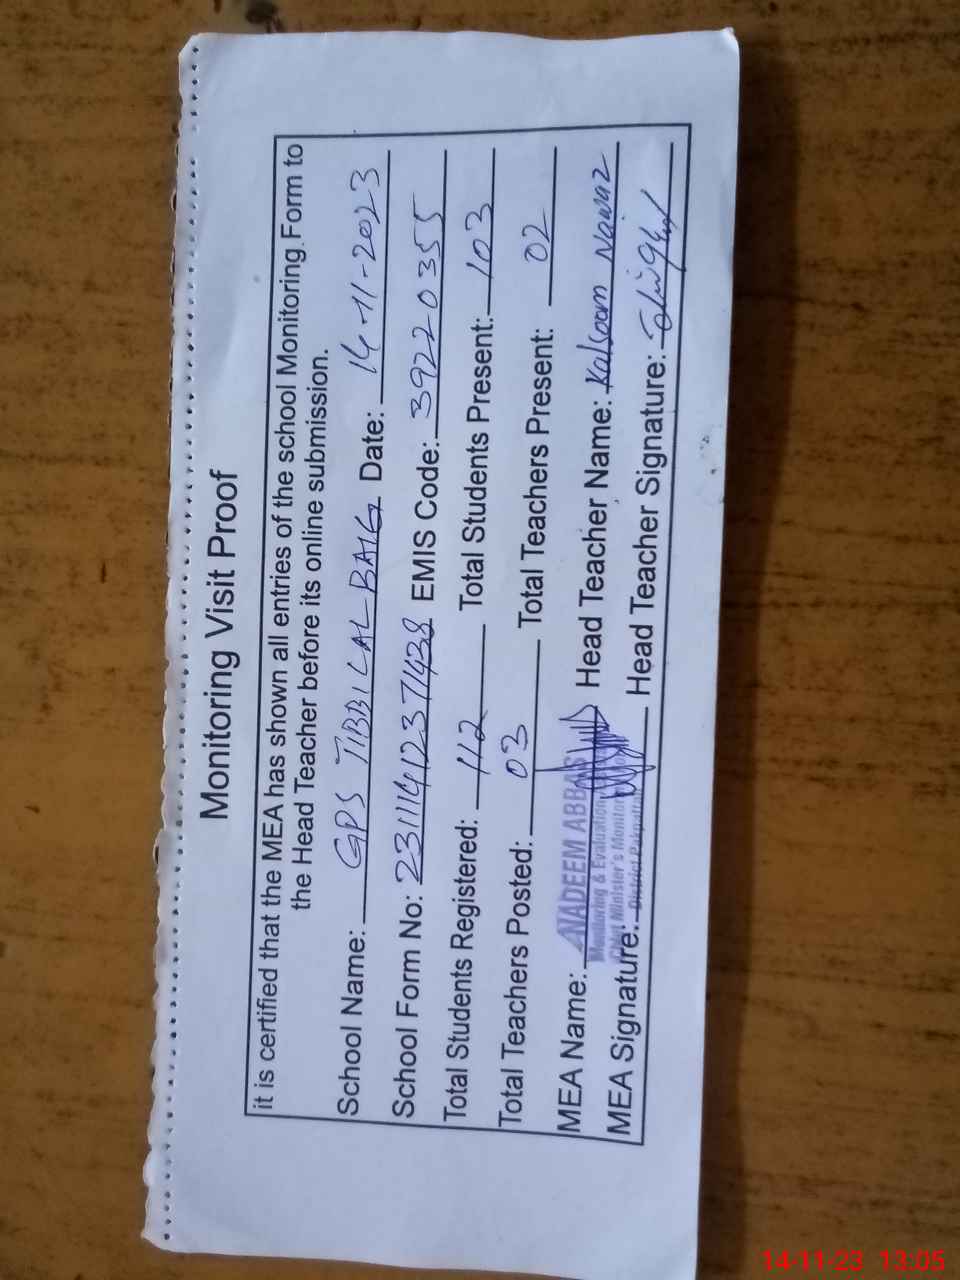 Monitoring Visit Proof
it is certified that the MEA has shown all entries of the school Monitoring Form to
the Head Teacher before its online submission.
School Name: GPS TIBBI LAL BAIG Date: 14-11-2023
School Form No: 231114112371438 EMIS Code: 39220355
Total Students Registered: 112 Total Students Present: 103
Total Teachers Posted: 03 Total Teachers Present: 02
MEA Name: NADEEM ABBAS Head Teacher Name: Kalsoom Nawaz
Monitoring & Evaluation
Chief Minister's Monitor
MEA Signature: District Pakpattan Head Teacher Signature:
14-11-23 13:05